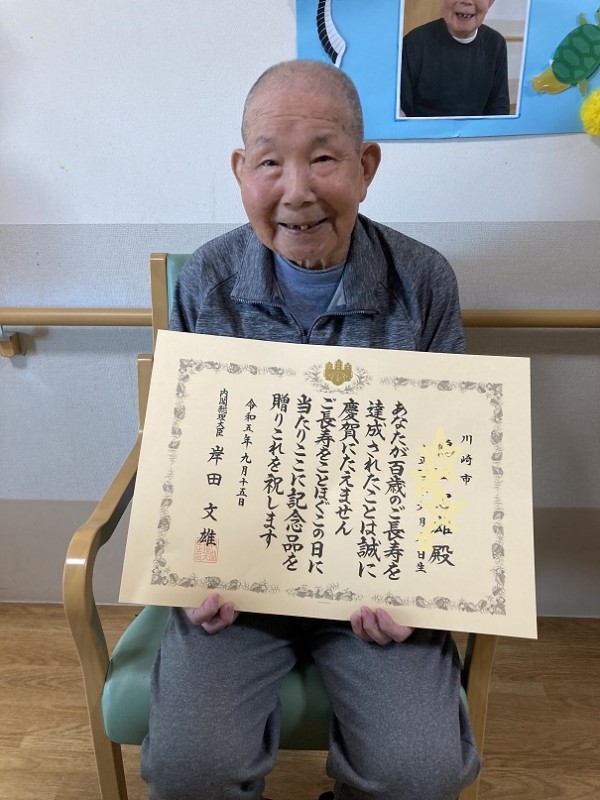 川崎市
雄殿
日生
あなたが百歳のご長寿を
達成されたことは誠に
慶賀にたえません
ご長寿をことほぐこの日に
当たりここに記念品を
贈りこれを祝します
令和五年九月十五日
内閣総理大臣 岸田文雄